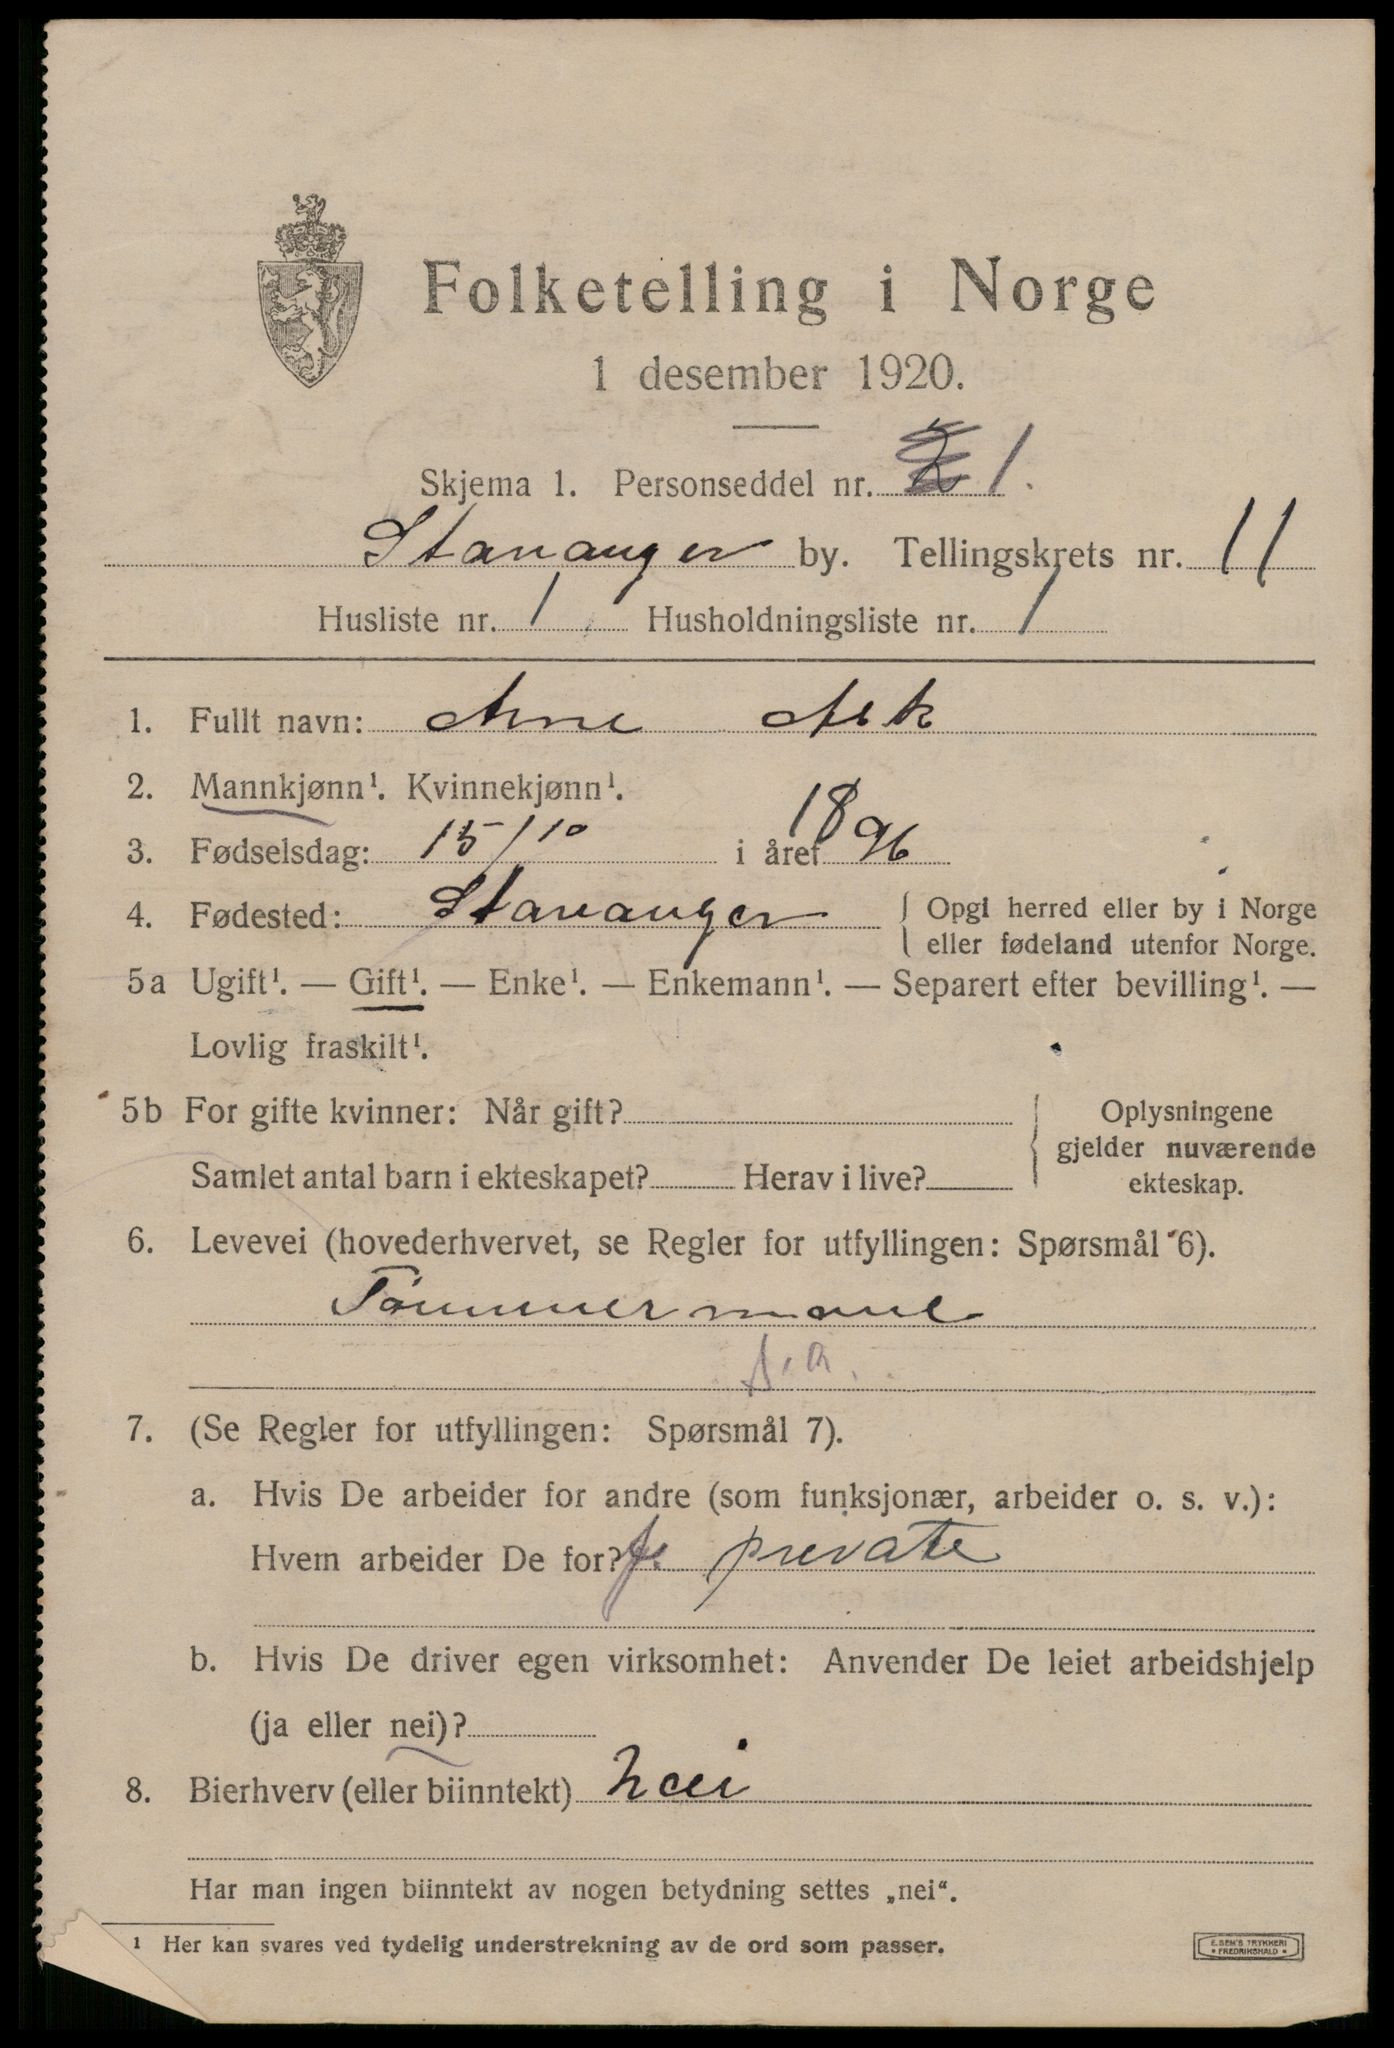 Folketelling i Norge
1 desember 1920.
Skjema 1. Personseddel nr. 1.
Stavanger by. Tellingskrets nr. 11
Husliste nr. 1 Husholdningsliste nr. 1
1. Fullt navn: Arne Ask
2. Mannkjønn¹. Kvinnekjønn¹.
3. Fødselsdag: 15/10 i året 1896
4. Fødested: Stavanger { Opgi herred eller by i Norge
eller fødeland utenfor Norge.
5a Ugift¹. — Gift¹. — Enke¹. — Enkemann¹. — Separert efter bevilling¹. —
Lovlig fraskilt¹.
5b For gifte kvinner: Når gift?
Samlet antal barn i ekteskapet? Herav i live?
{ Oplysningene
gjelder nuværende
ekteskap.
6. Levevei (hovederhvervet, se Regler for utfyllingen: Spørsmål 6).
Tømmermand
s.a.
7. (Se Regler for utfyllingen: Spørsmål 7).
a. Hvis De arbeider for andre (som funksjonær, arbeider o. s. v.):
Hvem arbeider De for? private
b. Hvis De driver egen virksomhet: Anvender De leiet arbeidshjelp
(ja eller nei)?
8. Bierhverv (eller biinntekt) nei
Har man ingen biinntekt av nogen betydning settes „nei“.
¹ Her kan svares ved tydelig understrekning av de ord som passer.
E. SEM'S TRYKKERI
• FREDRIKSHALD •